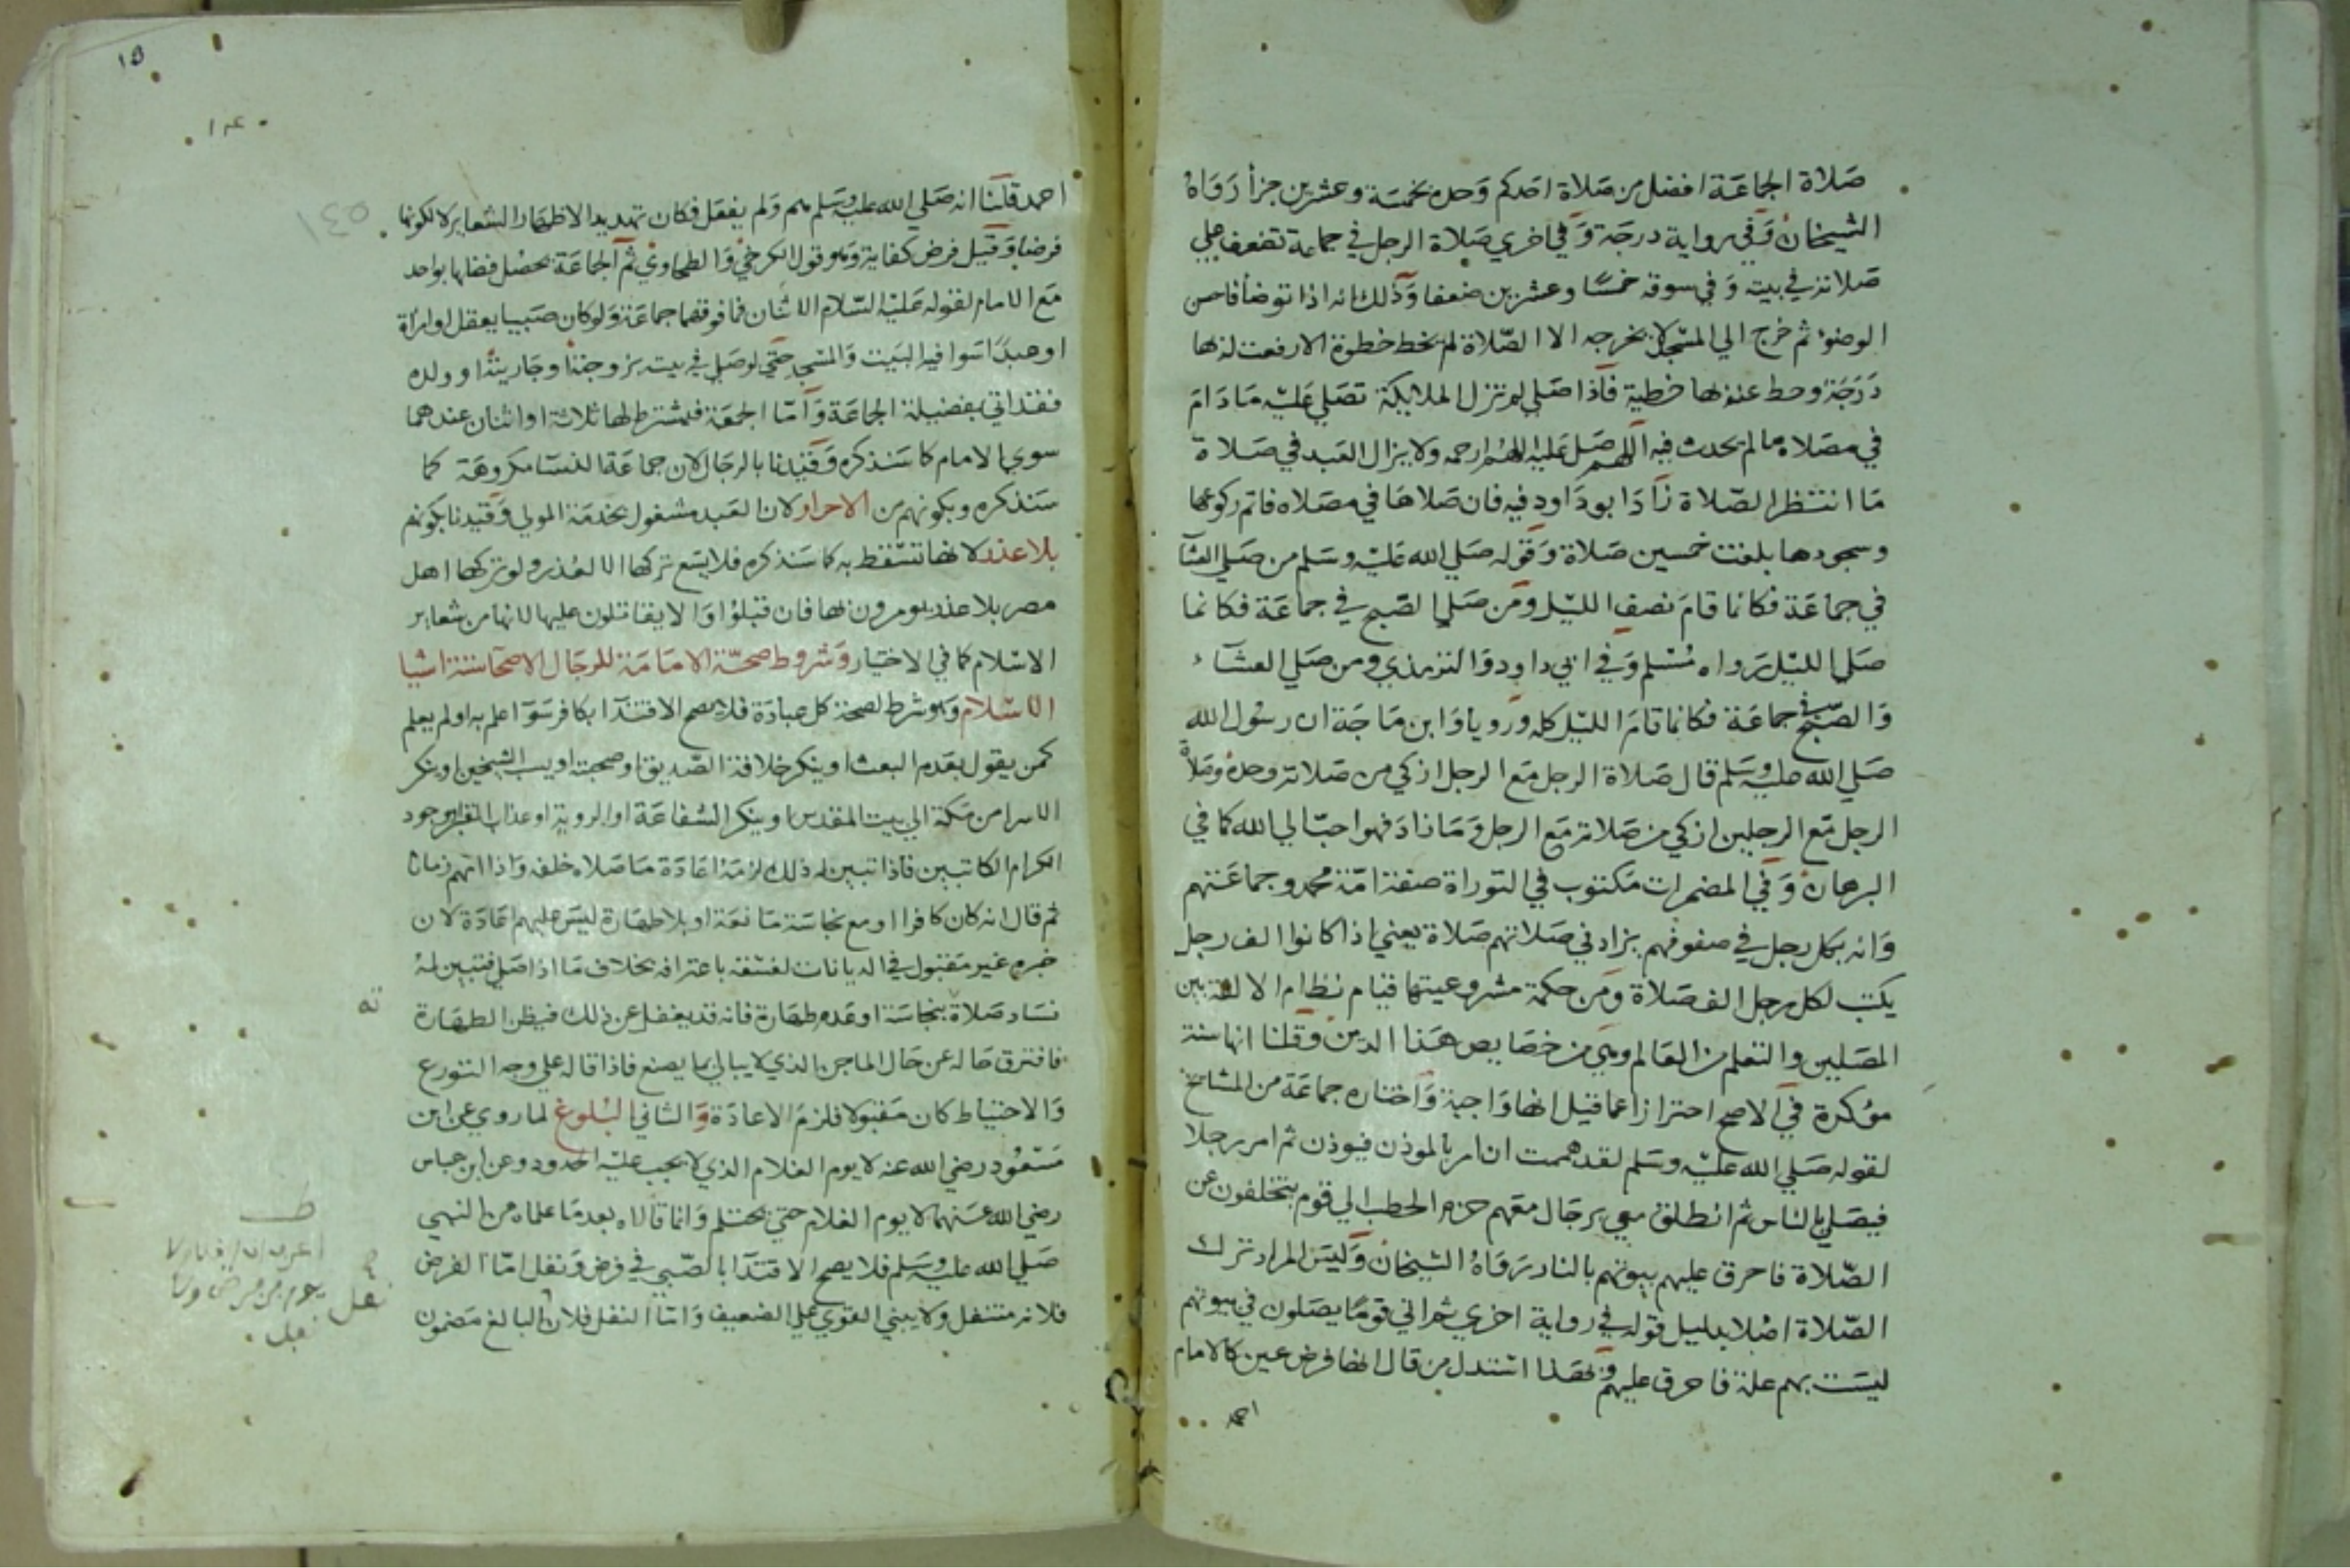 صلاة الجماعة افضل من صلاة احدكم وحده بخمسة وعشرين جزأ رواه
الشيخان وفي رواية درجة وفي اخري صلاة الرجل في جماعة تضعف علي
صلاته في بيته وفي سوقه خمسا وعشرين ضعفا وذلك انه اذا توضأ فاحسن
الوضوء ثم خرج الي المسجد لا يخرجه الا الصلاة لم يخط خطوة الا رفعت له بها
درجة وحط عنه بها خطية فاذا صلي لم تزل الملايكة تصلي عليه ما دام
في مصلاه ما لم يحدث فيه اللهم صل عليه اللهم ارحمه ولا يزال العبد في صلاة
ما انتظر الصلاة زاد ابو داود فيه فان صلاها في مصلاه فاتم ركوعها
وسجودها بلغت خمسين صلاة وقوله صلي الله عليه وسلم من صلي العشا
في جماعة فكانما قام نصف الليل ومن صلي الصبح في جماعة فكانما
صلي الليل رواه مسلم وفي ابي داود والترمذي ومن صلي العشاء
والصبح في جماعة فكانما قام الليل كله ورويا وابن ماجة ان رسول الله
صلي الله عليه وسلم قال صلاة الرجل مع الرجل ازكي من صلاته وحده وصلاة
الرجل مع الرجلين ازكي من صلاته مع الرجل وما زاد فهو احب الي الله كما في
البرهان وفي المضمرات مكتوب في التوراة صفة امة محمد وجماعتهم
وانه بكل رجل في صفوفهم يزاد في صلاتهم صلاة يعني اذا كانوا الف رجل
يكتب لكل رجل الف صلاة ومن حكمة مشروعيتها قيام نظام الالفة بين
المصلين والتعلم من العالم وهي من خصايص هذا الدين وقلنا انها سنة
مؤكدة في الاصح احترازا عما قيل انها واجبة واختاره جماعة من المشايخ
لقوله صلي الله عليه وسلم لقد هممت ان امر بالموذن فيوذن ثم امر رجلا
فيصلي بالناس ثم انطلق معي برجال معهم حزم الحطب الي قوم يتخلفون عن
الصلاة فاحرق عليهم بيوتهم بالنار رواه الشيخان وليس المراد ترك
الصلاة اصلا بدليل قوله في رواية اخري ثم اتي قوما يصلون في بيوتهم
ليست بهم علة فاحرق عليهم وبهذا استدل من قال انها فرض عين كالامام
احمد
١٥
١٤٠
احمد قلنا انه صلي الله عليه وسلم هم ولم يفعل فكان تهديدا لاظهار الشعاير لا لكونها
فرضا وقيل فرض كفاية وهو قول الكرخي والطحاوي ثم الجماعة يحصل فضلها بواحد
مع الامام لقوله عليه السلام الاثنان فما فوقهما جماعة ولو كان صبيا يعقل او امرأة
او عبدا سوا فيه البيت والمسجد حتي لو صلي في بيته بزوجته او جاريته او ولده
فقد اتي بفضيلة الجماعة واما الجمعة فيشترط لها ثلاثة او اثنان عندهما
سوي الامام كما سنذكره وقيدنا بالرجال لان جماعة النسا مكروهة كما
سنذكره وبكونهم من الاحرار لان العبد مشغول بخدمة المولي وقيدنا بكونهم
بلا عذر لانها تسقط به كما سنذكره فلا يسع تركها الا لعذر ولو تركها اهل
مصر بلا عذر يومرون بها فان قبلوا والا يقاتلون عليها لانها من شعاير
الاسلام كما في الاختيار وشروط صحة الامامة للرجال الاصحا ستة اشيا
الاسلام وهو شرط لصحة كل عبادة فلا يصح الاقتدا بكافر سوا علم به او لم يعلم
كمن يقول بقدم البعث او ينكر خلافة الصديق او صحبته او يسب الشيخين او ينكر
الاسرا من مكة الي بيت المقدس او ينكر الشفاعة او الروية او عذاب القبر او وجود
الكرام الكاتبين فاذا تبين له ذلك لزمه اعادة ما صلاه خلفه واذا امهم زمانا
ثم قال انه كان كافرا او مع نجاسة مانعة او بلا طهارة ليس عليهم اعادة لان
خبره غير مقبول في الديانات لفسقه باعترافه بخلاف ما اذا صلي فتبين له
فساد صلاة بنجاسة او عدم طهارة فانه قد يغفل عن ذلك فيظن الطهارة
فافترق حاله عن حال الماجن الذي لا يبالي بما يصنع فاذا قاله علي وجه التورع
والاحتياط كان مقبولا فلزم الاعادة والثاني البلوغ لما روي عن ابن
مسعود رضي الله عنه لا يوم الغلام الذي لا يجب عليه الحدود وعن ابن عباس
رضي الله عنهما لا يوم الغلام حتي يحتلم وانما قالاه بعد ما علماه من النبي
صلي الله عليه وسلم فلا يصح الاقتدا بالصبي في فرض ونفل اما الفرض
فلانه متنفل ولا يبني القوي علي الضعيف واما النفل فلان البالغ مضمون